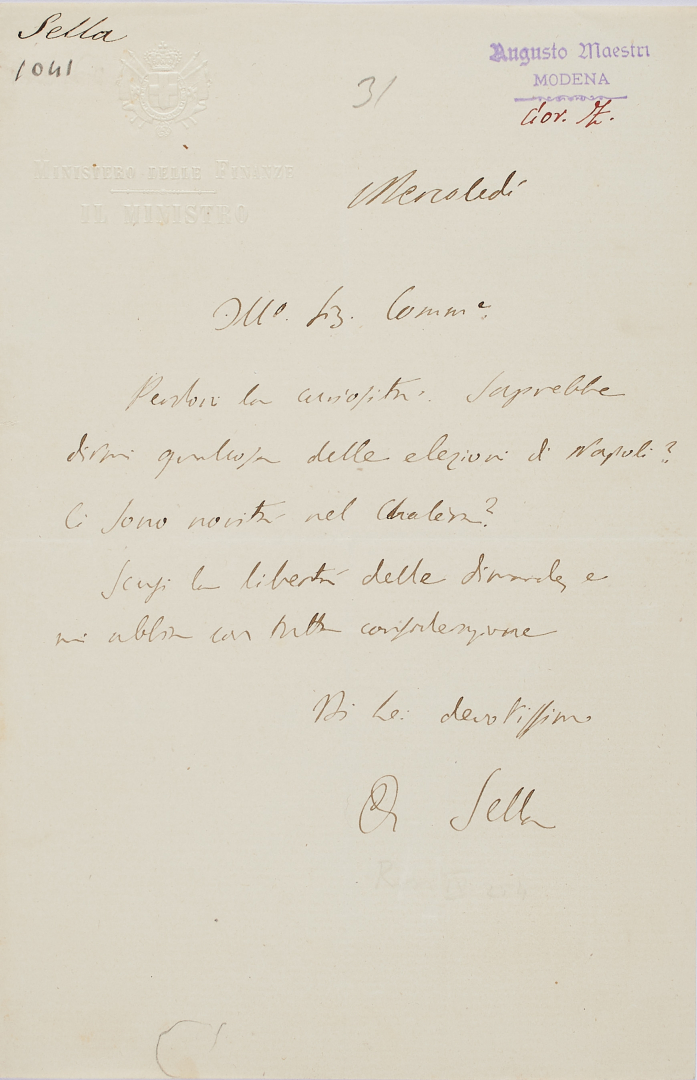 Sella
1041
31
Augusto Maestri
MODENA
MINISTERO DELLE FINANZE
IL MINISTRO
Mercoledì
Illo. Sig. Comme.
Perdoni la curiosità. Saprebbe
dirmi qualcosa delle elezioni di Napoli?
Ci sono novità nel
Scusi la libertà delle dimande, e
mi abbia con tutta considerazione
Di Lei devotissimo
Q Sella